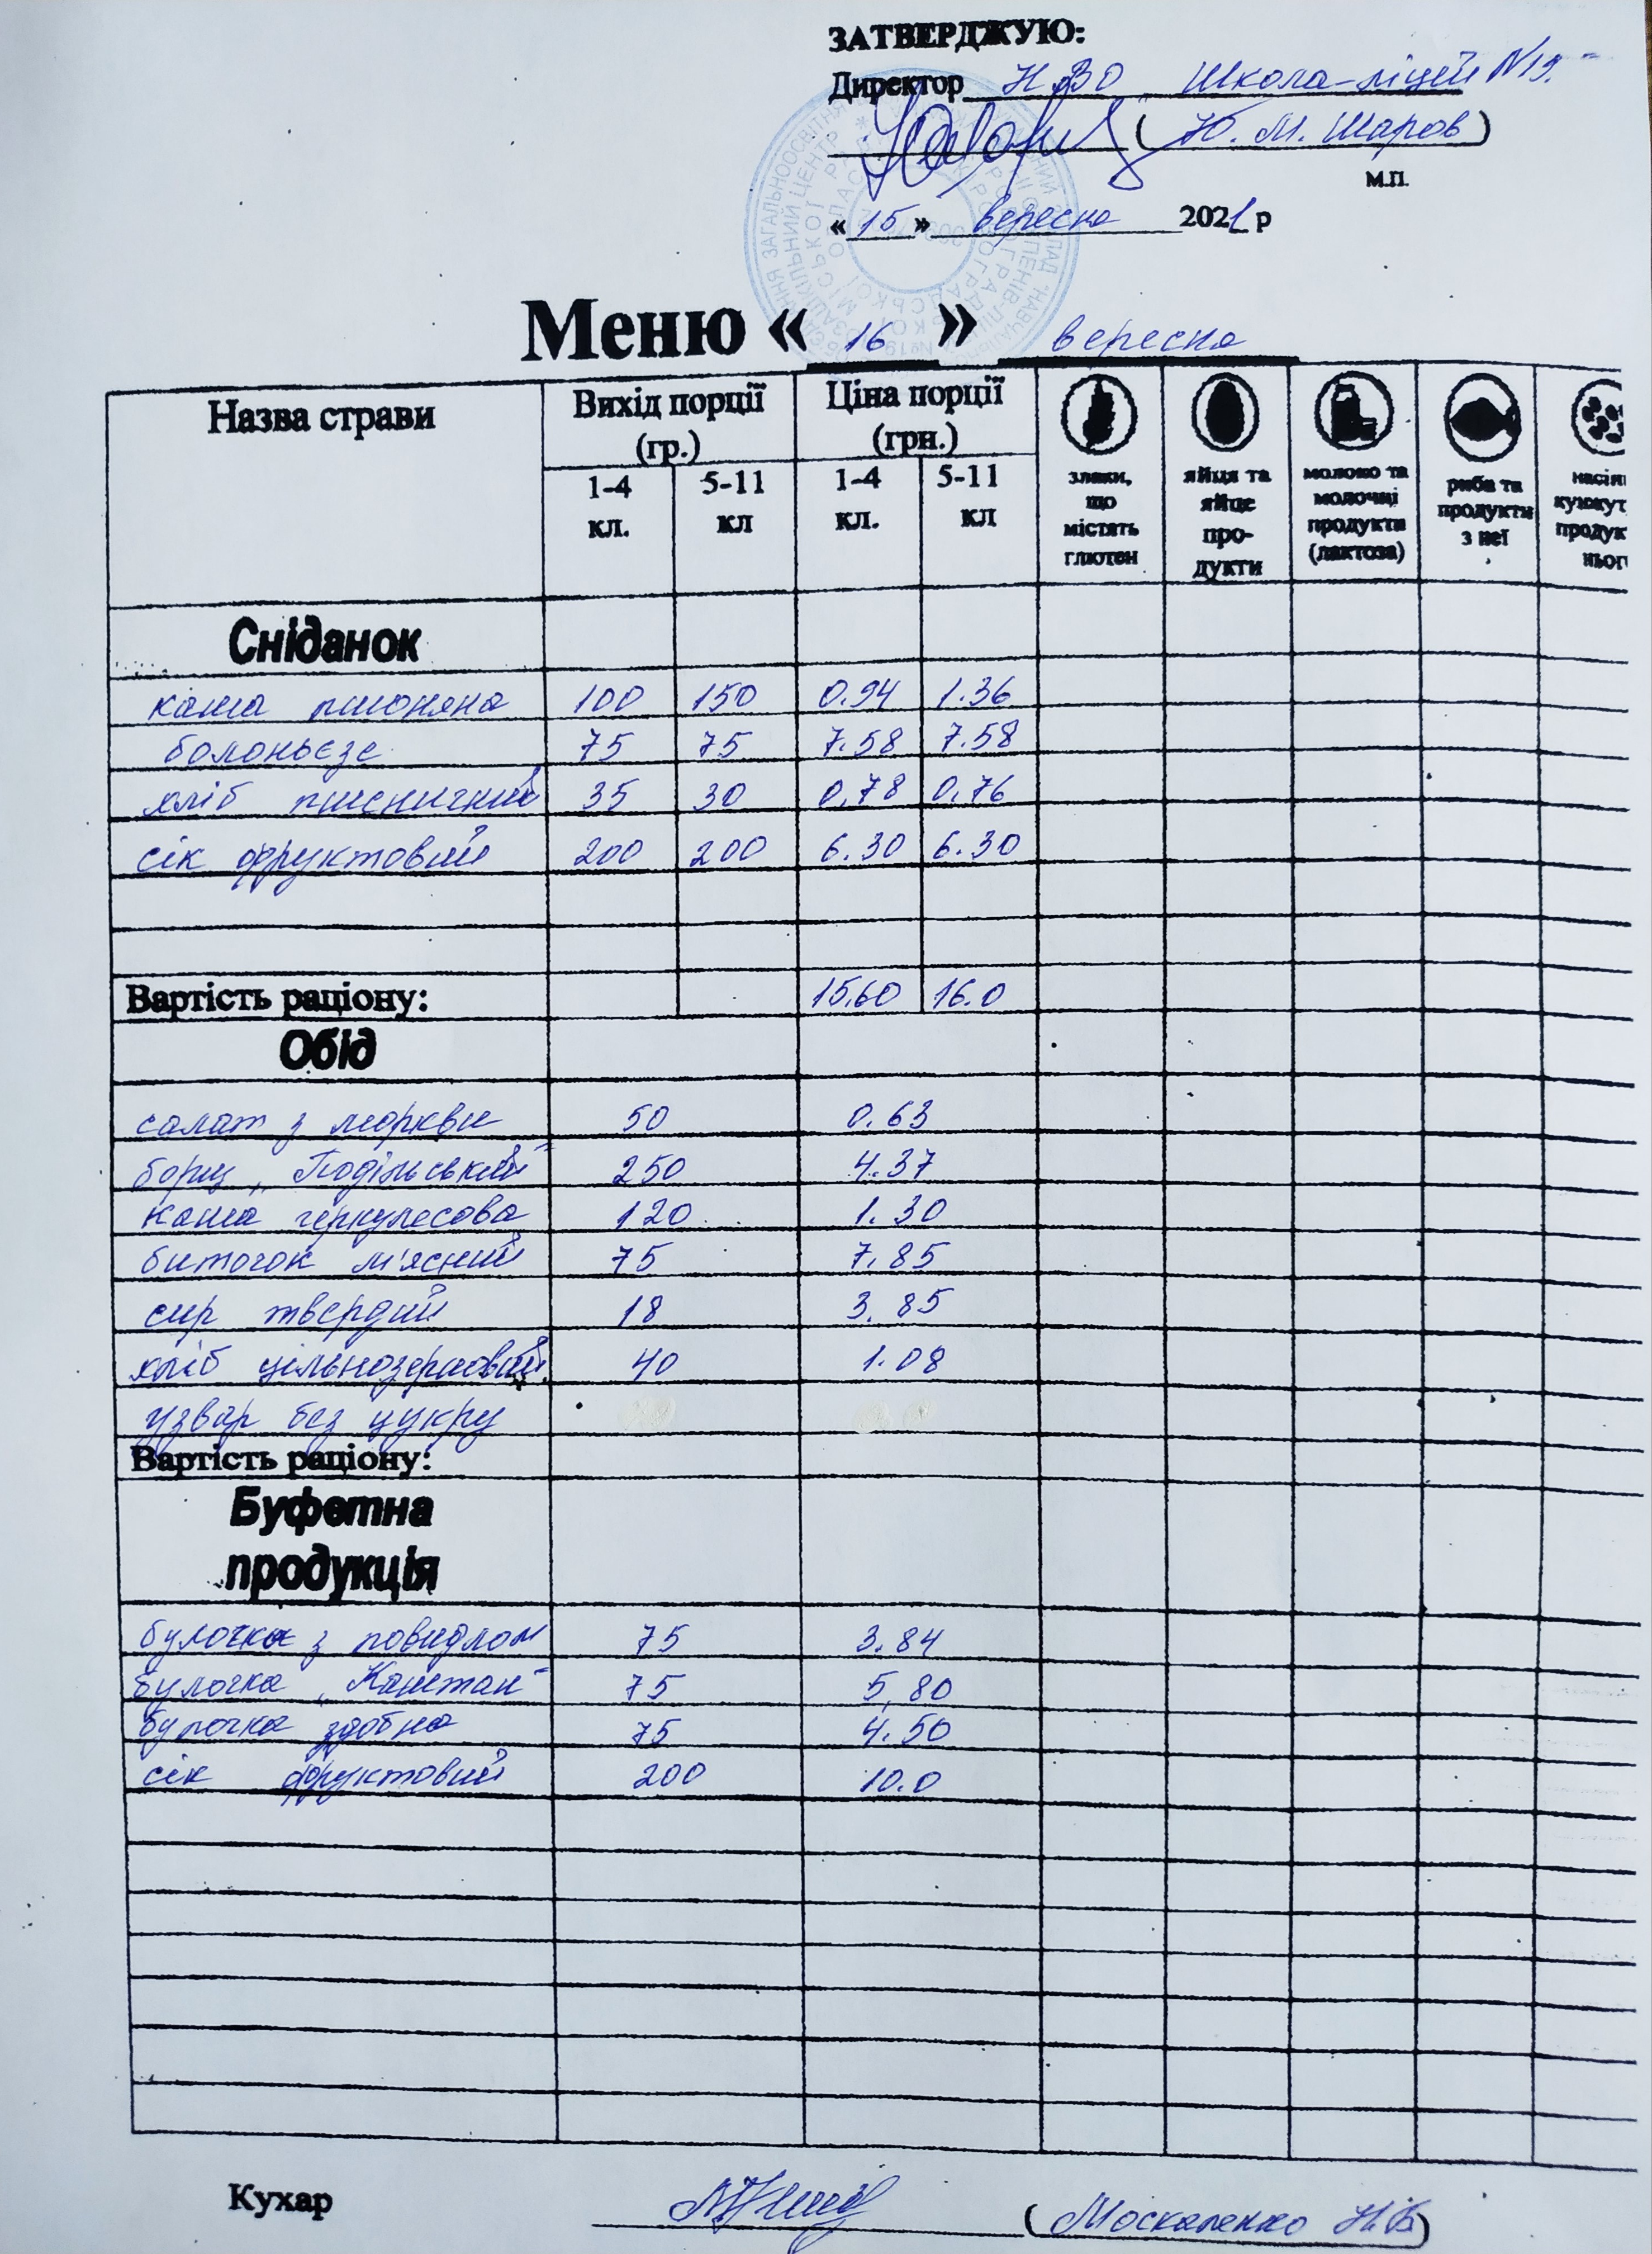 ЗАТВЕРДЖУЮ:
Директор НВО Школа-ліцей №19.
(Ю. М. Шаров)
М.П.
«15» вересня 2021 р
Меню «16» вересня
Назва страви Вихід порції (гр.) Ціна порції (грн.) злаки, що містять глютен яйця та яйце про-дукти молоко та молочні продукти (лактоза) риба та продукти з неї
1-4 кл. 5-11 кл 1-4 кл. 5-11 кл
Сніданок
каша пшоняна 100 150 0.94 1.36
болоньєзе 75 75 7.58 7.58
хліб пшеничний 35 30 0.78 0.76
сік фруктовий 200 200 6.30 6.30
Вартість раціону: 15.60 16.0
Обід
салат з моркви 50 0.63
борщ „Подільський" 250 4.37
каша геркулесова 120 1.30
биточок м'ясний 75 7.85
сир твердий 18 3.85
хліб цільнозерновий 40 1.08
узвар без цукру
Вартість раціону:
Буфетна
продукція
булочка з повидлом 75 3.84
булочка „Каштан" 75 5,80
булочка здобна 75 4.50
сік фруктовий 200 10.0
Кухар (Москаленко Н.В)